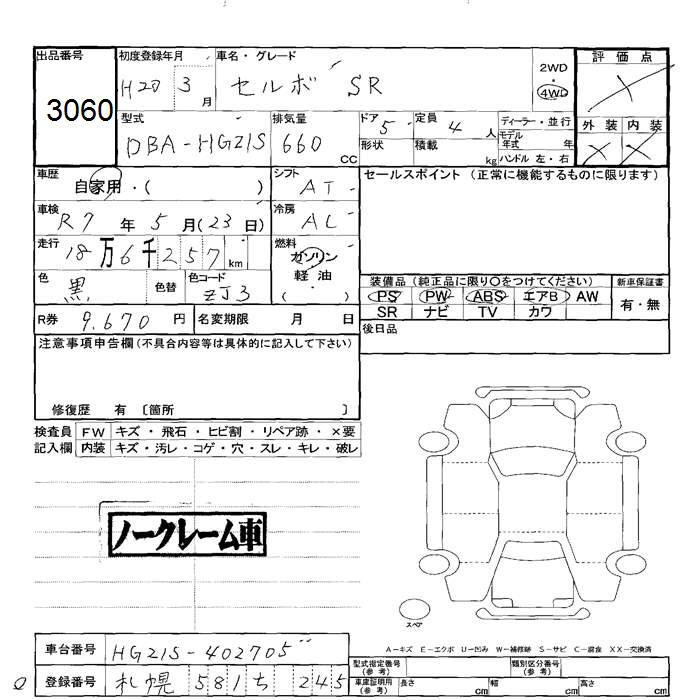 出品番号 3060
初度登録年月 H20 3月
車名・グレード セルボ SR
2WD 4WD
評価点 ×
外装 内装
× ×
型式 DBA-HG21S
排気量 660 CC
ドア 5 定員 4 人
形状 積載 kg
ディーラー・並行
モデル年式 年
ハンドル 左・右
車歴 自家用・( )
シフト AT
車検 R7 年 5 月(23 日)
冷房 AC
走行 18万6千257km
燃料 ガソリン 軽油 ( )
色 黒 色替 色コード ZJ3
R券 9,670 円 名変期限 月 日
セールスポイント (正常に機能するものに限ります)
装備品 (純正品に限り〇をつけてください) 新車保証書
PS PW ABS エアB AW 有・無
SR ナビ TV カワ
後日品
注意事項申告欄(不具合内容等は具体的に記入して下さい)
修復歴 有 〔箇所 〕
検査員記入欄 FW キズ・飛石・ヒビ割・リペア跡・×要
内装 キズ・汚レ・コゲ・穴・スレ・キレ・破レ
ノークレーム車
スペア
A-キズ E-エクボ U-凹み W-補修跡 S-サビ C-腐食 XX-交換済
車台番号 HG21S-402705
登録番号 札幌 581 ち 245
型式指定番号(参考) 類別区分番号(参考)
車庫証明用(参考) 長さ cm 幅 cm 高さ cm